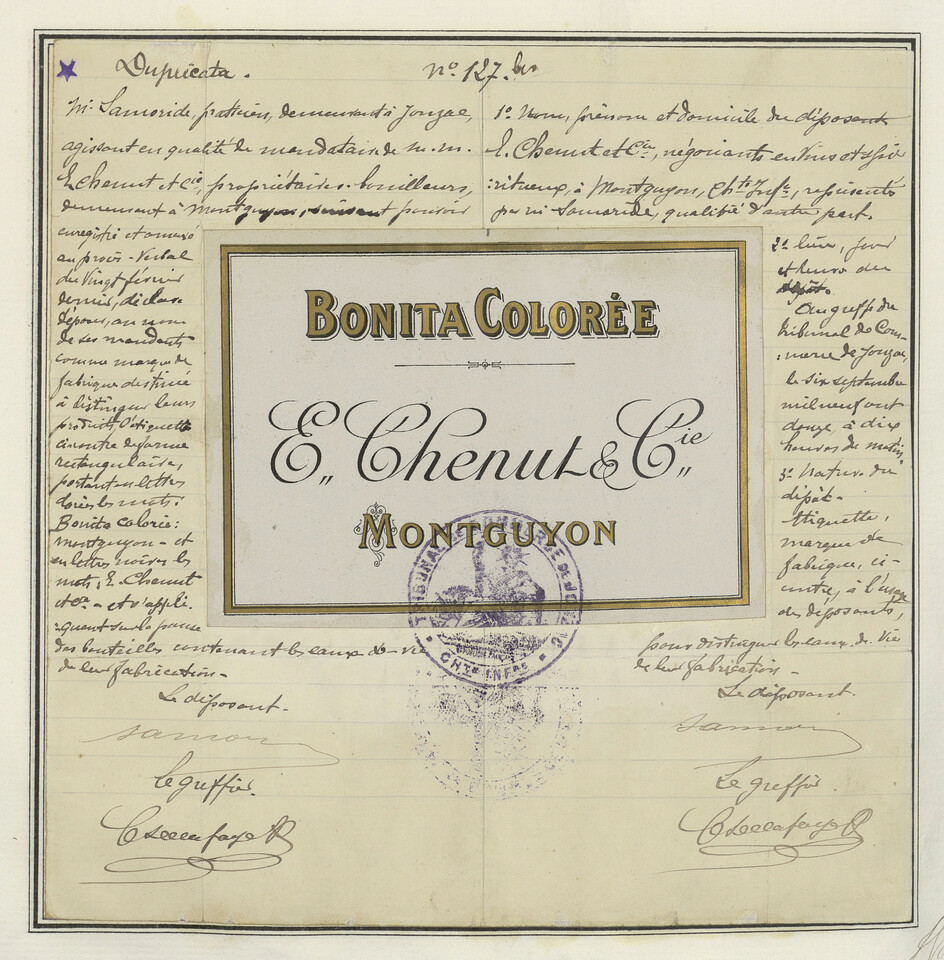 Duplicata.
n° 127 bis
Mr Samoride, praticien, demeurant à Jonzac,
agissant en qualité de mandataire de m.m.
E. Chenut et Cie, propriétaires-bouilleurs,
demeurant à Montguyon, suivant pouvoir
enregistré et annexé
au procès-verbal
du Vingt février
dernier, déclare
déposer, au nom
de ses mandants
comme marque de
fabrique destinée
à distinguer leurs
produits, l'étiquette
ci-contre de forme
rectangulaire,
portant en lettres
dorées les mots:
Bonita Colorée:
Montguyon - et
en lettres noires les
mots, E. Chenut
et Cie - et s'appli-
:quant sur la panse
des bouteilles contenant les eaux-de-vie
de leur fabrication -
Le déposant.
Le greffier.
1° Nom, prénom et domicile du déposant
E. Chenut et Cie, négociants en Vins et spi-
:ritueux, à Montguyon, Chte Infre, représentés
par mr Samoride, qualifié d'autre part.
2° lieu, jour
et heure du
dépôt.
Au greffe du
tribunal de Com-
:merce de Jonzac,
le six septembre
mil neuf cent
douze, à dix
heures du matin,
3° Nature du
dépôt -
Etiquette,
marque de
fabrique, ci-
contre, à l'usage
des déposants,
pour distinguer les eaux-de-Vie
de leur fabrication -
Le déposant.
Le greffier.
BONITA COLORÉE
E. Chenut & Cie
MONTGUYON
TRIBUNAL DE COMMERCE DE JONZAC
CHTE INFRE